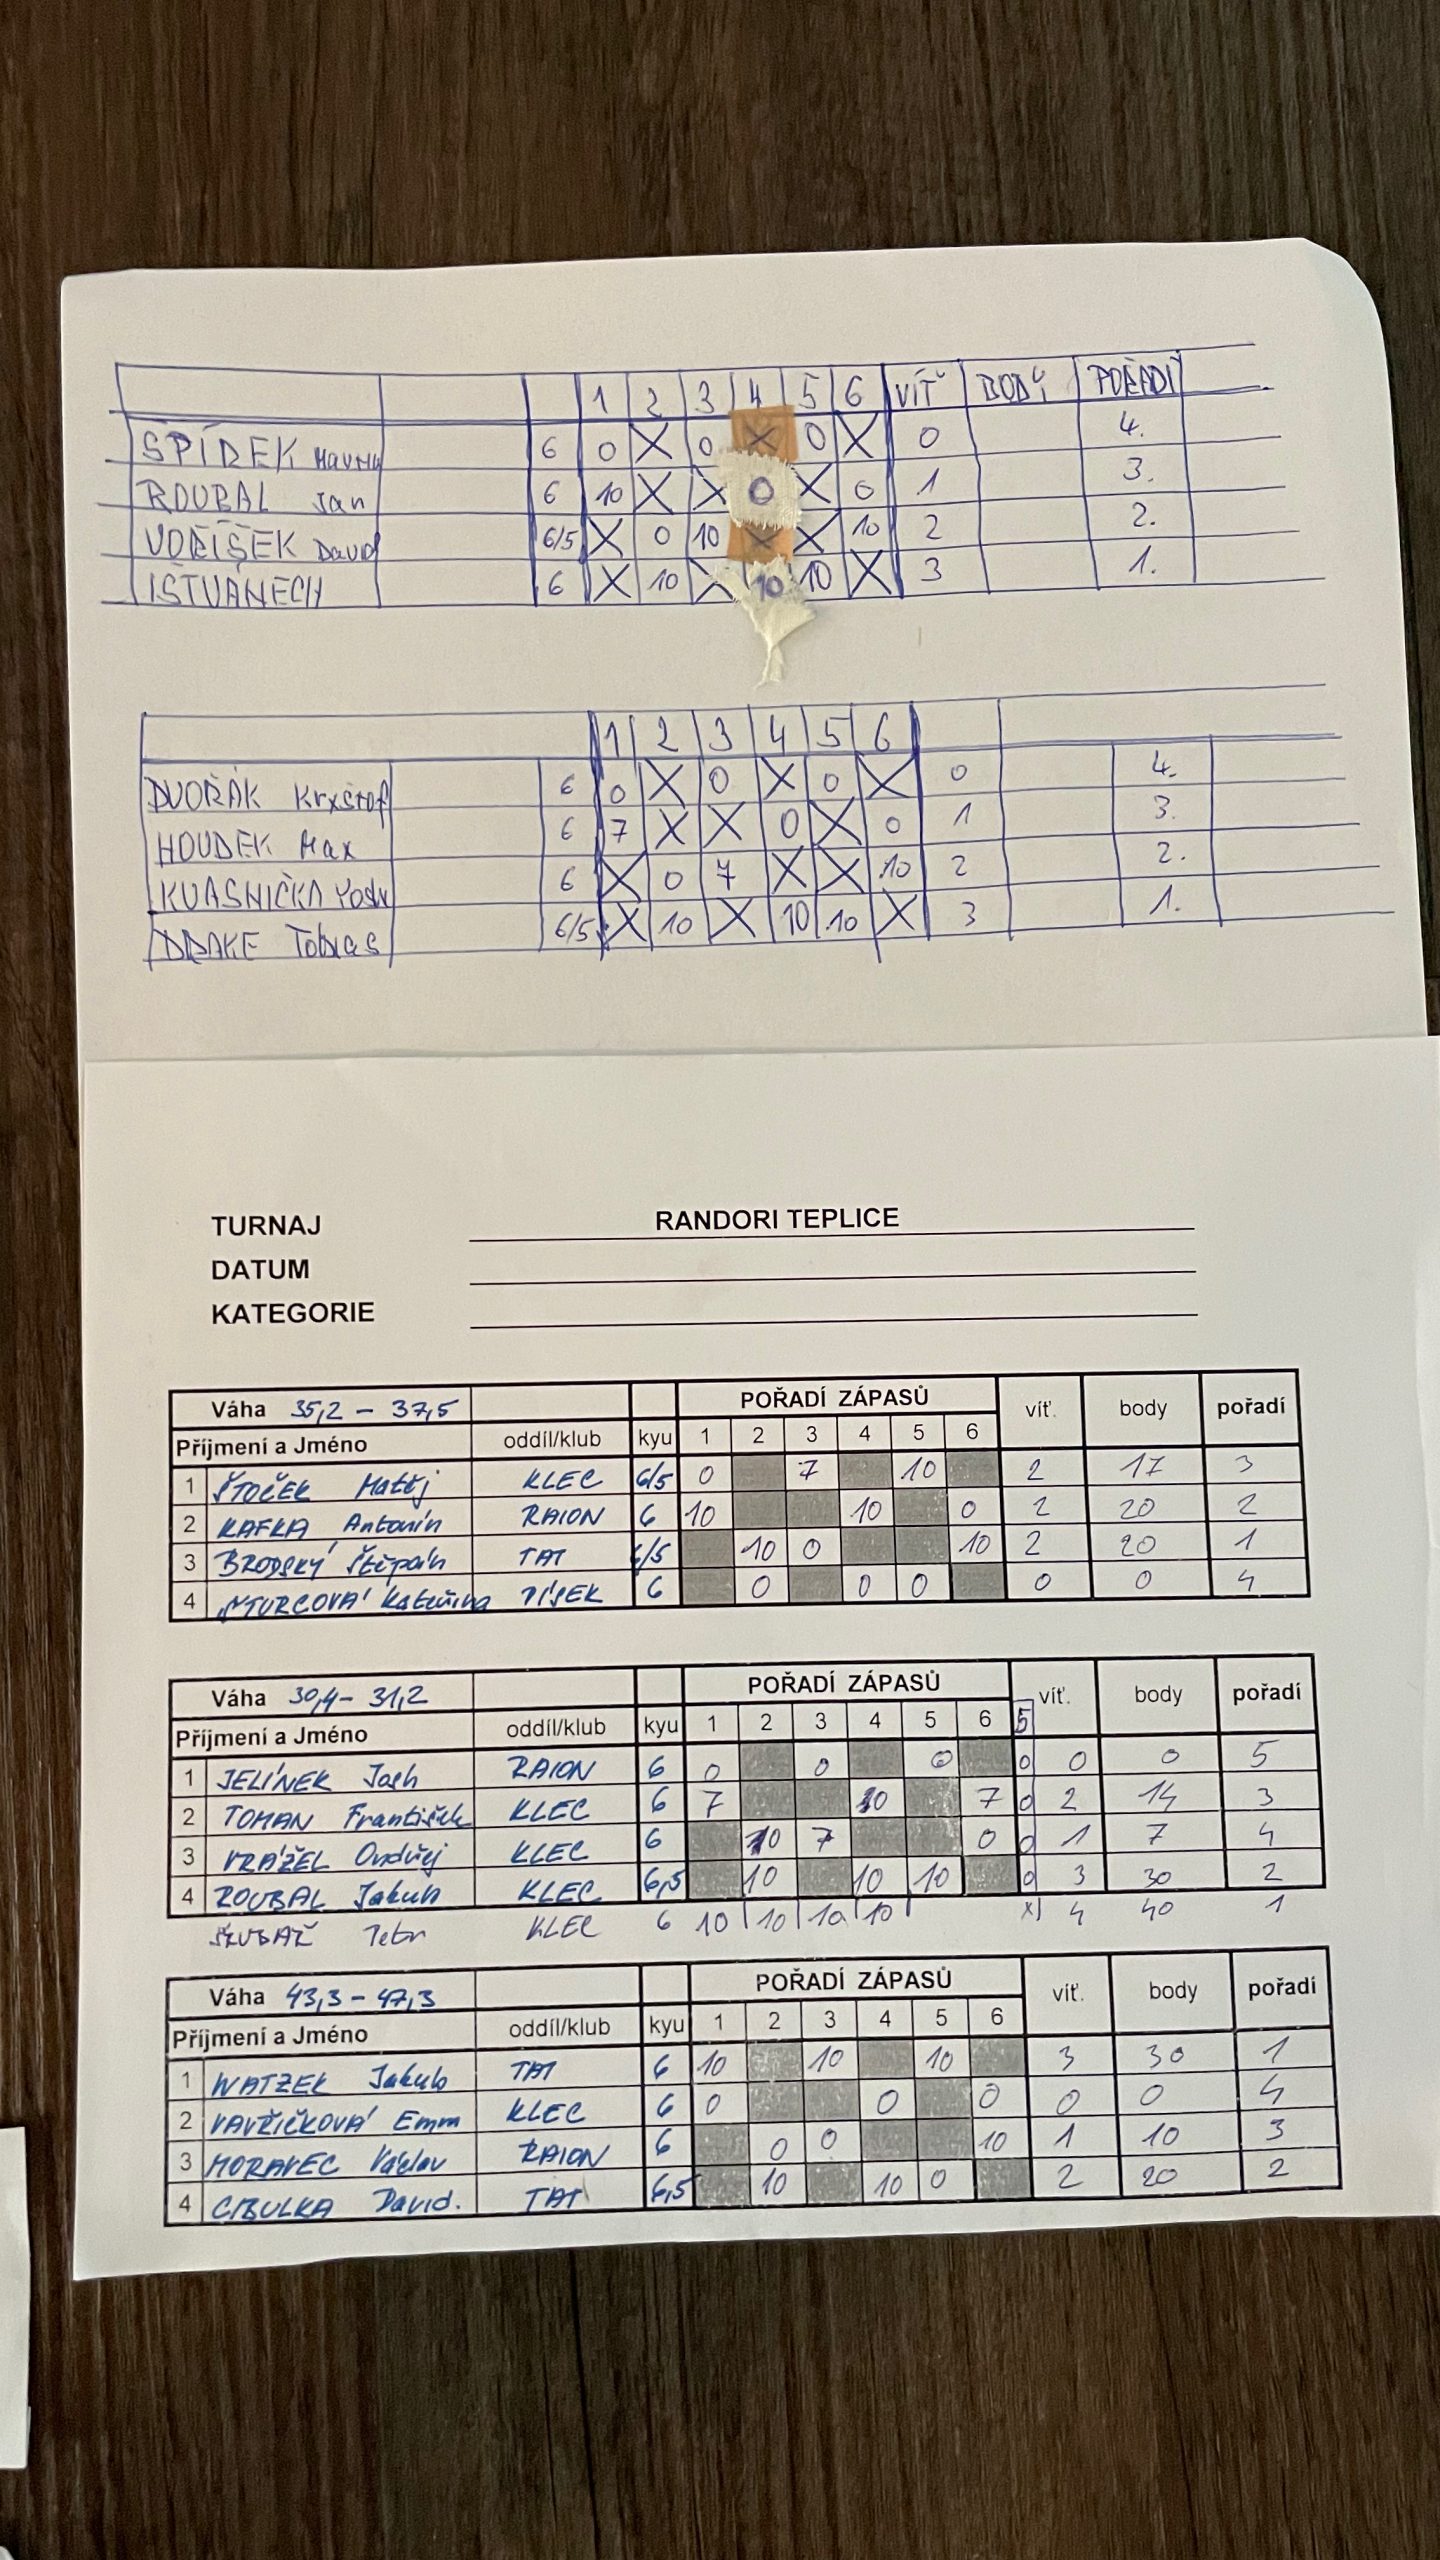 1 2 3 4 5 6 VÍŤ BODY POŘADÍ
ŠPÍREK 6 0 X 0 X 0 X 0 4.
ROUBAL Jan 6 10 X X 0 X 0 1 3.
VOŘÍŠEK David 6/5 X 0 10 X X 10 2 2.
IŠTVÁNECH 6 X 10 X 10 10 X 3 1.
1 2 3 4 5 6
DVOŘÁK Kryštof 6 0 X 0 X 0 X 0 4.
HOUDEK Max 6 7 X X 0 X 0 1 3.
KVASNIČKA 6 X 0 7 X X 10 2 2.
DRAKE Tobias 6/5 X 10 X 10 10 X 3 1.
TURNAJ RANDORI TEPLICE
DATUM
KATEGORIE
Váha 35,2 - 37,5 POŘADÍ ZÁPASŮ víť. body pořadí
Příjmení a Jméno oddíl/klub kyu 1 2 3 4 5 6
1 ŠTOČEK Matěj KLEC 6/5 0 7 10 2 17 3
2 KAFKA Antonín RAION 6 10 10 0 2 20 2
3 BRODSKÝ Štěpán TAT 6/5 10 0 10 2 20 1
4 Kateřina PÍSEK 6 0 0 0 0 0 4
Váha 30,4 - 31,2 POŘADÍ ZÁPASŮ víť. body pořadí
Příjmení a Jméno oddíl/klub kyu 1 2 3 4 5 6 5
1 JELÍNEK Josh RAION 6 0 0 0 0 0 0 5
2 TOMAN František KLEC 6 7 10 7 0 2 14 3
3 VRÁŽEL Ondřej KLEC 6 10 7 0 0 1 7 4
4 ROUBAL Jakub KLEC 6,5 10 10 10 0 3 30 2
Petr KLEC 6 10 10 10 10 X 4 40 1
Váha 43,3 - 47,3 POŘADÍ ZÁPASŮ víť. body pořadí
Příjmení a Jméno oddíl/klub kyu 1 2 3 4 5 6
1 WATZEK Jakub TAT 6 10 10 10 3 30 1
2 VAVŘIČKOVÁ Emm KLEC 6 0 0 0 0 0 4
3 MORAVEC Václav RAION 6 0 0 10 1 10 3
4 CIBULKA David. TAT 6,5 10 10 0 2 20 2